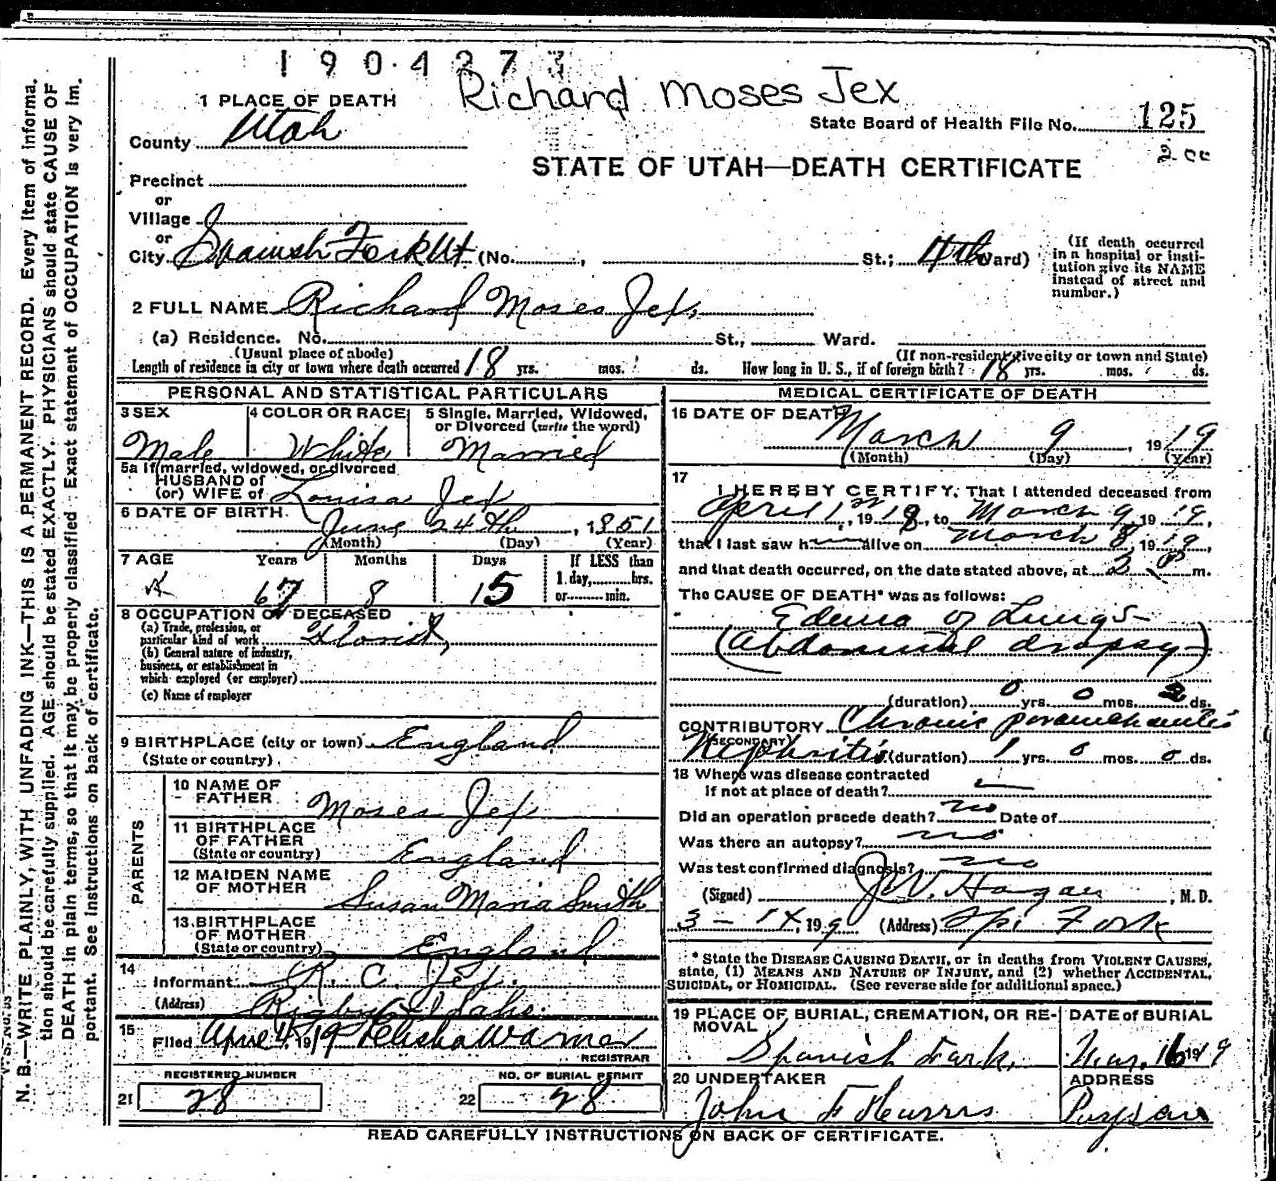 190427
Richard Moses Jex
1 PLACE OF DEATH
County Utah
State Board of Health File No. 125
STATE OF UTAH—DEATH CERTIFICATE
Precinct
or
Village
or
City Spanish Fork Ut (No. , St.; 4th Ward)
(If death occurred in a hospital or institution give its NAME instead of street and number.)
2 FULL NAME Richard Moses Jex
(a) Residence. No. St., Ward.
(Usual place of abode) (If non-resident give city or town and State)
Length of residence in city or town where death occurred 18 yrs. mos. ds. How long in U. S., if of foreign birth? 18 yrs. mos. ds.
PERSONAL AND STATISTICAL PARTICULARS
3 SEX Male
4 COLOR OR RACE White
5 Single, Married, Widowed, or Divorced (write the word) Married
5a If married, widowed, or divorced
HUSBAND of
(or) WIFE of Louisa Jex
6 DATE OF BIRTH June 24th, 1851
(Month) (Day) (Year)
7 AGE Years Months Days If LESS than
1 day, hrs.
or min.
67 8 15
8 OCCUPATION OF DECEASED
(a) Trade, profession, or particular kind of work Florist,
(b) General nature of industry, business, or establishment in which employed (or employer)
(c) Name of employer
9 BIRTHPLACE (city or town) England
(State or country)
PARENTS
10 NAME OF FATHER Moses Jex
11 BIRTHPLACE OF FATHER England
(State or country)
12 MAIDEN NAME OF MOTHER Susan Maria Smith
13 BIRTHPLACE OF MOTHER England
(State or country)
14
Informant R. C. Jex.
(Address) Rigby Idaho
15
Filed April 4, 1919 Elisha Warner
REGISTRAR
REGISTERED NUMBER
21 28
NO. OF BURIAL PERMIT
22 28
MEDICAL CERTIFICATE OF DEATH
16 DATE OF DEATH March 9, 1919
(Month) (Day) (Year)
17
I HEREBY CERTIFY, That I attended deceased from
April 1, 1918, to March 9, 1919,
that I last saw h alive on March 8, 1919,
and that death occurred, on the date stated above, at 2 P m.
The CAUSE OF DEATH* was as follows:
Edema of Lungs
(abdominal dropsy)
(duration) 0 yrs. 0 mos. 2 ds.
CONTRIBUTORY Chronic
(SECONDARY)
Nephritis (duration) 1 yrs. 0 mos. 0 ds.
18 Where was disease contracted
if not at place of death?
Did an operation precede death? no Date of
Was there an autopsy? no
Was test confirmed diagnosis? no
(Signed) J. W. Hagan, M. D.
(Address) Sp. Fork
* State the DISEASE CAUSING DEATH, or in deaths from VIOLENT CAUSES, state, (1) MEANS AND NATURE OF INJURY, and (2) whether ACCIDENTAL, SUICIDAL, or HOMICIDAL. (See reverse side for additional space.)
19 PLACE OF BURIAL, CREMATION, OR REMOVAL Spanish Fork.
DATE of BURIAL Mar. 16 1919
20 UNDERTAKER John F
ADDRESS Payson
READ CAREFULLY INSTRUCTIONS ON BACK OF CERTIFICATE.
N. B.—WRITE PLAINLY, WITH UNFADING INK—THIS IS A PERMANENT RECORD. Every item of information should be carefully supplied. AGE should be stated EXACTLY. PHYSICIANS should state CAUSE OF DEATH in plain terms, so that it may be properly classified. Exact statement of OCCUPATION is very important. See instructions on back of certificate.